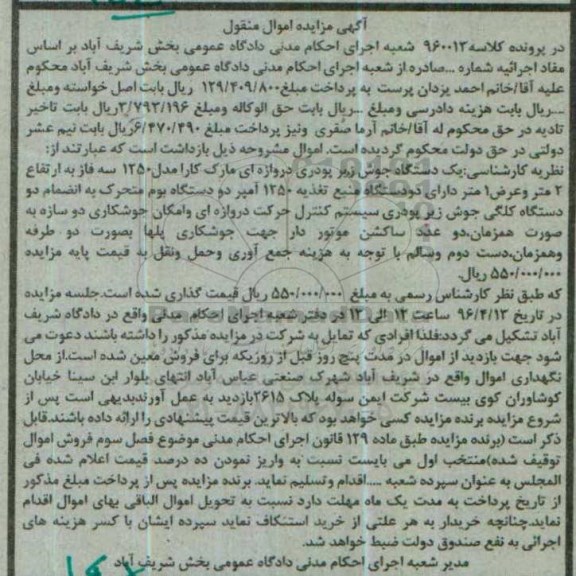 آگهی مزایده اموال منقول
در پرونده کلاسه ۹۶۰۰۱۳ شعبه اجرای احکام مدنی دادگاه عمومی بخش شریف آباد بر اساس
مفاد اجرائیه شماره ...صادره از شعبه اجرای احکام مدنی دادگاه عمومی بخش شریف آباد محکوم
علیه آقا/خانم احمد یزدان پرست به پرداخت مبلغ ۱۲۹/۴۰۹/۸۰۰ ریال بابت اصل خواسته ومبلغ
...ریال بابت هزینه دادرسی ومبلغ ...ریال بابت حق الوکاله ومبلغ ۳/۷۹۳/۱۹۶ریال بابت تاخیر
تادیه در حق محکوم له آقا/خانم آرما صفری ونیز پرداخت مبلغ ۶/۴۷۰/۴۹۰ریال بابت نیم عشر
دولتی در حق دولت محکوم گردیده است. اموال مشروحه ذیل بازداشت است که عبارتند از:
نظریه کارشناسی:یک دستگاه جوش زیر پودری دروازه ای مارک کارا مدل۱۲۵۰ سه فاز به ارتفاع
۲ متر وعرض۱ متر دارای دودستگاه منبع تغذیه ۱۲۵۰ آمپر دو دستگاه بوم متحرک به انضمام دو
دستگاه کلگی جوش زیر پودری سیستم کنترل حرکت دروازه ای وامکان جوشکاری دو سازه به
صورت همزمان،دو عدد ساکشن موتور دار جهت جوشکاری پلها بصورت دو طرفه
وهمزمان،دست دوم وسالم با توجه به هزینه جمع آوری وحمل ونقل به قیمت پایه مزایده
۵۵۰/۰۰۰/۰۰۰ ریال.
که طبق نظر کارشناس رسمی به مبلغ ۵۵۰/۰۰۰/۰۰۰ ریال قیمت گذاری شده است.جلسه مزایده
در تاریخ ۹۶/۴/۱۳ ساعت ۱۲ الی ۱۳ در دفتر شعبه اجرای احکام مدنی واقع در دادگاه شریف
آباد تشکیل می گردد:فلذا افرادی که تمایل به شرکت در مزایده مذکور را داشته باشند دعوت می
شود جهت بازدید از اموال در مدت پنج روز قبل از روزیکه برای فروش معین شده است.از محل
نگهداری اموال واقع در شریف آباد شهرک صنعتی عباس آباد انتهای بلوار ابن سینا خیابان
کوشاوران کوی بیست شرکت ایمن سوله پلاک ۲۶۱۵بازدید به عمل آورندبدیهی است پس از
شروع مزایده برنده مزایده کسی خواهد بود که بالاترین قیمت پیشنهادی را ارائه داده باشند.قابل
ذکر است (برنده مزایده طبق ماده ۱۲۹ قانون اجرای احکام مدنی موضوع فصل سوم فروش اموال
توقیف شده)منتخب اول می بایست نسبت به واریز نمودن ده درصد قیمت اعلام شده فی
المجلس به عنوان سپرده شعبه ....اقدام وتسلیم نماید. برنده مزایده پس از پرداخت مبلغ مذکور
از تاریخ پرداخت به مدت یک ماه مهلت دارد نسبت به تحویل اموال الباقی بهای اموال اقدام
نماید.چنانچه خریدار به هر علتی از خرید استنکاف نماید سپرده ایشان با کسر هزینه های
اجرائی به نفع صندوق دولت ضبط خواهد شد.
مدیر شعبه اجرای احکام مدنی دادگاه عمومی بخش شریف آباد